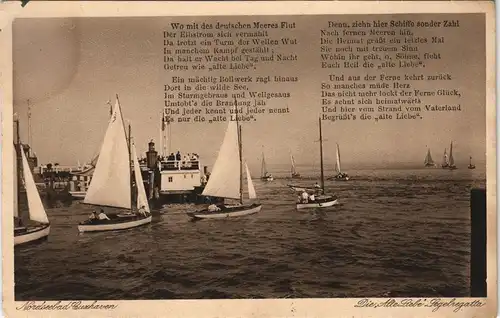 Wo mit des deutschen Meeres Flut
Der Elbstrom sich vermählt
Da trotzt ein Turm der Wellen Wut
In manchem Kampf gestählt;
Da hält er Wacht bei Tag und Nacht
Getreu wie „alte Liebe".
Ein mächtig Bollwerk ragt hinaus
Dort in die wilde See,
In Sturmgebraus und Wellgesaus
Umtobt's die Brandung jäh
Und jeder kennt und jeder nennt
Es nur die „alte Liebe".
Denn, ziehn hier Schiffe sonder Zahl
Nach fernen Meeren hin,
Die Heimat grüßt ein letztes Mal
Sie noch mit treuem Sinn
Wohin ihr geht, o, Söhne, fleht
Euch Heil die „alte Liebe".
Und aus der Ferne kehrt zurück
So manches müde Herz
Das nicht mehr lockt der Ferne Glück,
Es sehnt sich heimatwärts
Und hier vom Strand vom Vaterland
Begrüßt's die „alte Liebe".
Nordseebad Cuxhaven
Die „Alte Liebe". Segelregatta